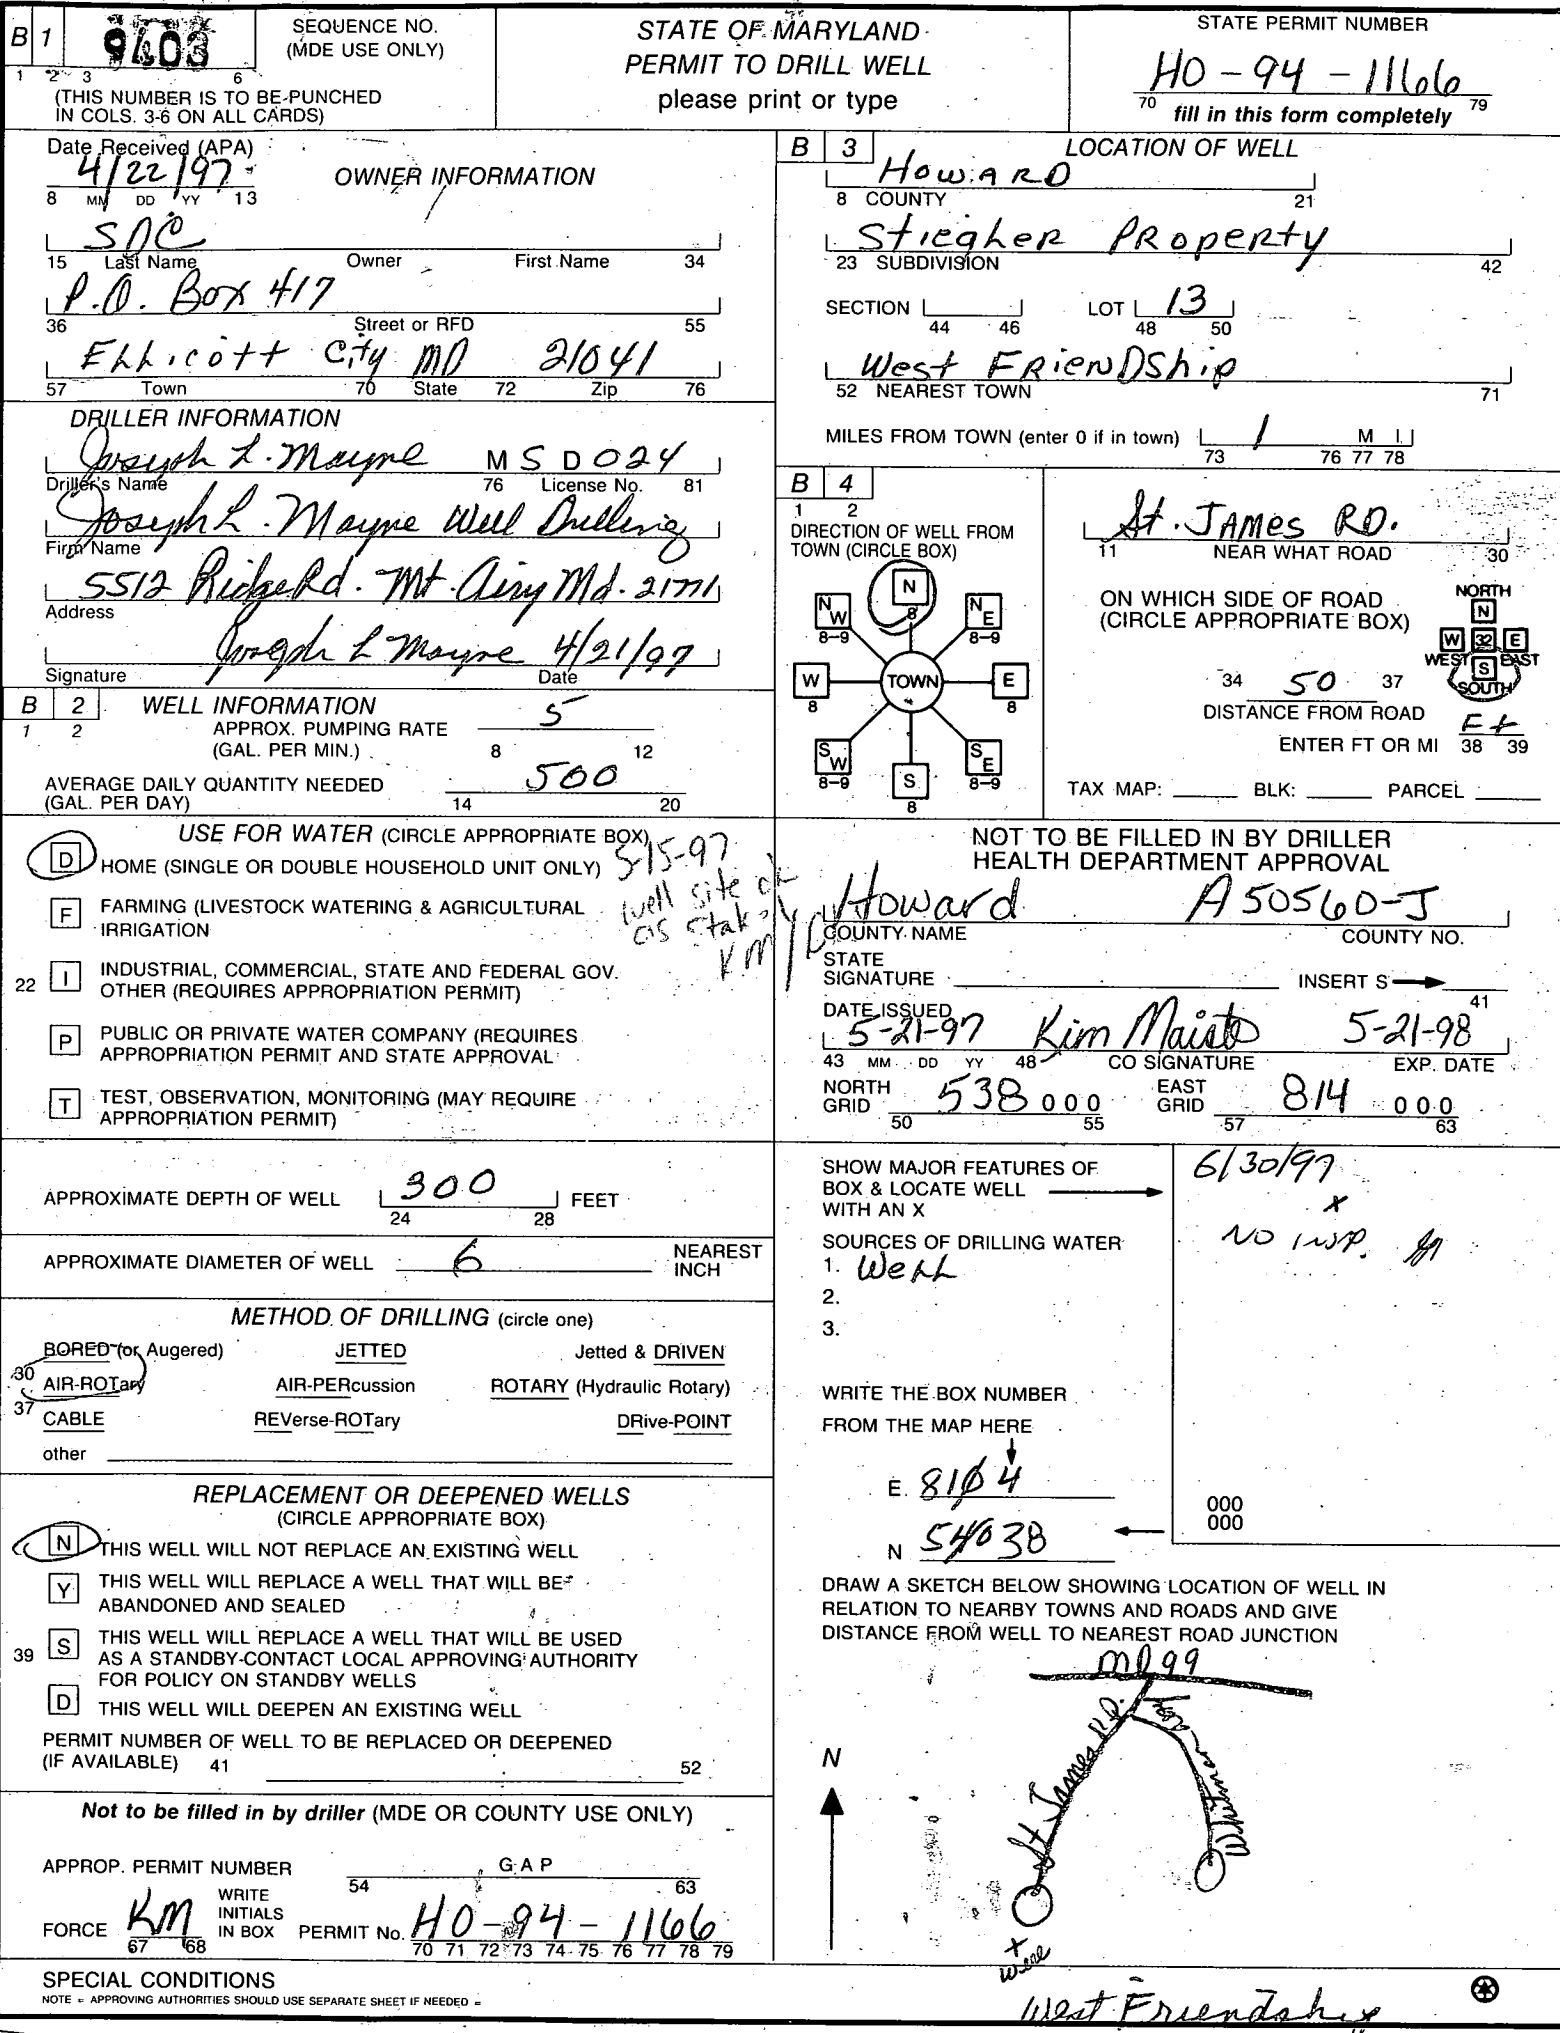 B 1
9403
1 2 3 6
SEQUENCE NO.
(MDE USE ONLY)
(THIS NUMBER IS TO BE PUNCHED
IN COLS. 3-6 ON ALL CARDS)
STATE OF MARYLAND
PERMIT TO DRILL WELL
please print or type
STATE PERMIT NUMBER
HO-94-1166
70 79
fill in this form completely
Date Received (APA)
4/22/97
8 MM DD YY 13
OWNER INFORMATION
SDC
15 Last Name Owner First Name 34
P.O. Box 417
36 Street or RFD 55
Ellicott City MD 21041
57 Town 70 State 72 Zip 76
DRILLER INFORMATION
Joseph L. Mayne MSD024
Driller's Name 76 License No. 81
Joseph L. Mayne Well Drilling
Firm Name
5512 Ridge Rd. Mt. Airy Md. 21771
Address
Joseph L Mayne 4/21/97
Signature Date
B 2
1 2
WELL INFORMATION
APPROX. PUMPING RATE
(GAL. PER MIN.)
5
8 12
AVERAGE DAILY QUANTITY NEEDED
(GAL. PER DAY)
500
14 20
USE FOR WATER (CIRCLE APPROPRIATE BOX)
D HOME (SINGLE OR DOUBLE HOUSEHOLD UNIT ONLY)
F FARMING (LIVESTOCK WATERING & AGRICULTURAL
IRRIGATION
22 I INDUSTRIAL, COMMERCIAL, STATE AND FEDERAL GOV.
OTHER (REQUIRES APPROPRIATION PERMIT)
P PUBLIC OR PRIVATE WATER COMPANY (REQUIRES
APPROPRIATION PERMIT AND STATE APPROVAL
T TEST, OBSERVATION, MONITORING (MAY REQUIRE
APPROPRIATION PERMIT)
5-15-97
well site ok
as stak
KM
APPROXIMATE DEPTH OF WELL 300 FEET
24 28
APPROXIMATE DIAMETER OF WELL 6 NEAREST
INCH
METHOD OF DRILLING (circle one)
BORED (or Augered) JETTED Jetted & DRIVEN
30 AIR-ROTary AIR-PERcussion ROTARY (Hydraulic Rotary)
37 CABLE REVerse-ROTary DRive-POINT
other
REPLACEMENT OR DEEPENED WELLS
(CIRCLE APPROPRIATE BOX)
N THIS WELL WILL NOT REPLACE AN EXISTING WELL
Y THIS WELL WILL REPLACE A WELL THAT WILL BE
ABANDONED AND SEALED
39 S THIS WELL WILL REPLACE A WELL THAT WILL BE USED
AS A STANDBY-CONTACT LOCAL APPROVING AUTHORITY
FOR POLICY ON STANDBY WELLS
D THIS WELL WILL DEEPEN AN EXISTING WELL
PERMIT NUMBER OF WELL TO BE REPLACED OR DEEPENED
(IF AVAILABLE) 41 52
Not to be filled in by driller (MDE OR COUNTY USE ONLY)
APPROP. PERMIT NUMBER GAP
54 63
FORCE KM WRITE
INITIALS
IN BOX
67 68
PERMIT No. HO-94-1166
70 71 72 73 74 75 76 77 78 79
SPECIAL CONDITIONS
NOTE = APPROVING AUTHORITIES SHOULD USE SEPARATE SHEET IF NEEDED =
B 3
LOCATION OF WELL
Howard
8 COUNTY 21
Stiegher Property
23 SUBDIVISION 42
SECTION LOT 13
44 46 48 50
West Friendship
52 NEAREST TOWN 71
MILES FROM TOWN (enter 0 if in town) 1 M I
73 76 77 78
B 4
1 2
DIRECTION OF WELL FROM
TOWN (CIRCLE BOX)
N
8
NW
8-9
NE
8-9
W
8
TOWN
E
8
SW
8-9
S
8
SE
8-9
St. James RD.
11 NEAR WHAT ROAD 30
ON WHICH SIDE OF ROAD
(CIRCLE APPROPRIATE BOX)
NORTH
N
W 32 E
WEST EAST
S
SOUTH
34 50 37
DISTANCE FROM ROAD
ENTER FT OR MI Ft
38 39
TAX MAP: BLK: PARCEL
NOT TO BE FILLED IN BY DRILLER
HEALTH DEPARTMENT APPROVAL
Howard A50560-J
COUNTY NAME COUNTY NO.
STATE
SIGNATURE INSERT S
41
DATE ISSUED
5-21-97 Kim Maisto 5-21-98
43 MM DD YY 48 CO SIGNATURE EXP. DATE
NORTH
GRID 538 000
50 55
EAST
GRID 814 000
57 63
SHOW MAJOR FEATURES OF
BOX & LOCATE WELL
WITH AN X
SOURCES OF DRILLING WATER
1. Well
2.
3.
6/30/97
X
NO INSP.
WRITE THE BOX NUMBER
FROM THE MAP HERE
E. 8104
N 54038
000
000
DRAW A SKETCH BELOW SHOWING LOCATION OF WELL IN
RELATION TO NEARBY TOWNS AND ROADS AND GIVE
DISTANCE FROM WELL TO NEAREST ROAD JUNCTION
MD 99
St James Rd.
N
X
Well
West Friendship